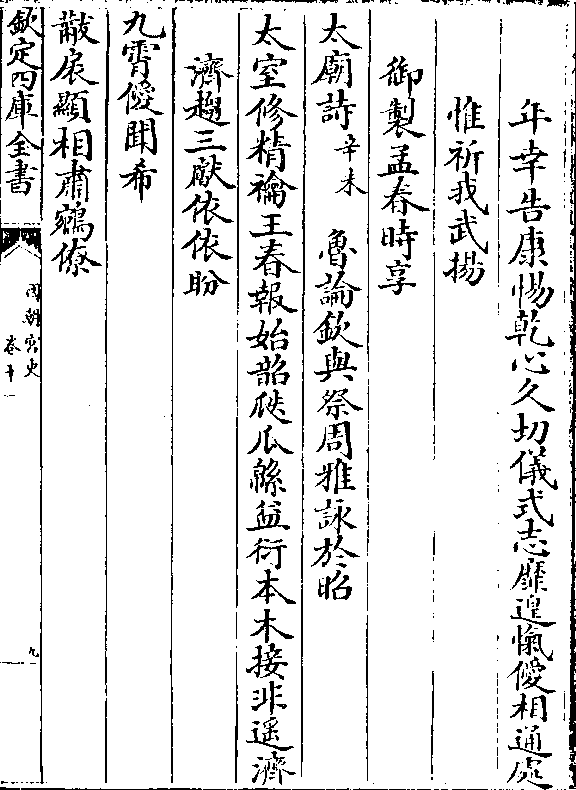 年幸告康惕乾心久切儀式志靡遑愾僾相通處
惟祈我武揚
御製孟春時享
太廟詩辛未　魯論欽與祭周雅詠於昭
太室修精禴王春報始韶瓞瓜綿益衍本木接非遥濟
濟趨三獻依依盼
九霄僾聞希
黻扆顯相肅鵷僚
欽定四庫全書
國朝宮史
卷十一
九